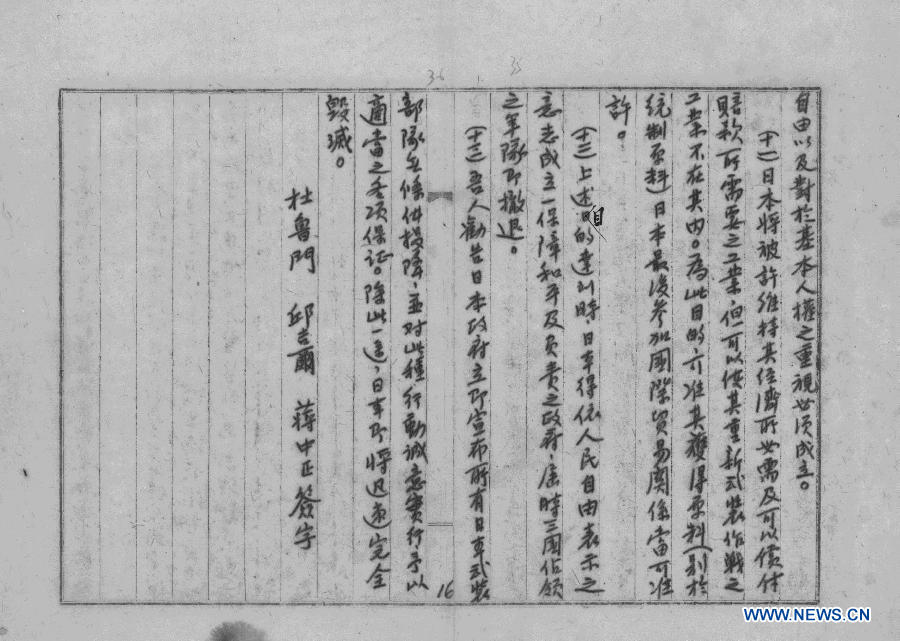 36
35
自由以及對於基本人權之重視必須成立。
(十一)日本將被許維持其經濟所必需及可以償付
賠款所需要之工業,但可以使其重新武裝作戰之
工業不在其內。為此目的,可准其獲得原料(別於
統制原料)日本最後參加國際貿易關係當可准
許。
(十二)上述目的達到時,日本得依人民自由表示之
意志成立一保障和平及負責之政府,屆時三國佔領
之軍隊即撤退。
(十三)吾人勸告日本政府立即宣布所有日本武裝
部隊無條件投降,並对此種行動誠意實行予以
適當之各項保证。除此一途,日本即將迅速完全
毀滅。
杜魯門 邱吉爾 蔣中正簽字
16
WWW.NEWS.CN